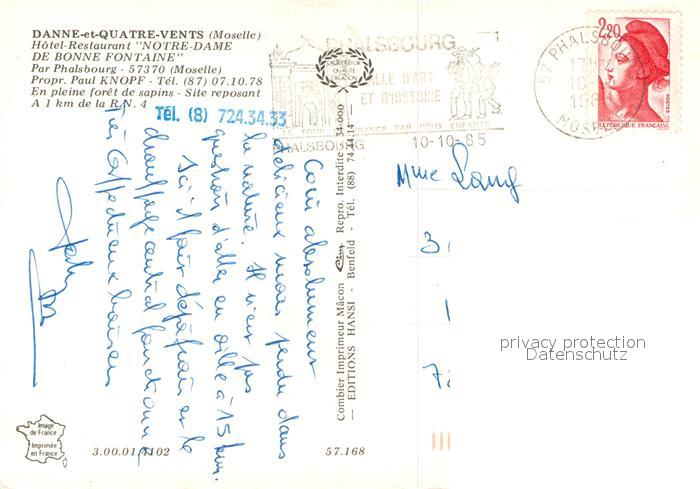 DANNE-et-QUATRE-VENTS (Moselle)
Hôtel-Restaurant "NOTRE-DAME
DE BONNE FONTAINE"
Par Phalsbourg - 57370 (Moselle)
Propr. Paul KNOPF - Tél. (87) 07.10.78
En pleine forêt de sapins - Site reposant
A 1 km de la R.N. 4
Tél. (8) 724.34.33
Coin absolument
délicieux mais perdu dans
la nature. Il n'est pas
question d'aller en ville à 15 km.
Ici il fait déjà frais et le
chauffage central fonctionne
Très affectueux baisers
Combier Imprimeur Mâcon Cim Repro. Interdite
— EDITIONS HANSI - Benfeld - Tél. (88) 74.14.14
PHALSBOURG
VILLE D'ART
ET D'HISTOIRE
PHALSBOURG
10-10-85
57 PHALSBOURG
MOSELLE
2,20
POSTES
REPUBLIQUE FRANÇAISE
Mme Lang
privacy protection
Datenschutz
Image
de France
Imprimée
en France
3.00.01.1102
57.168